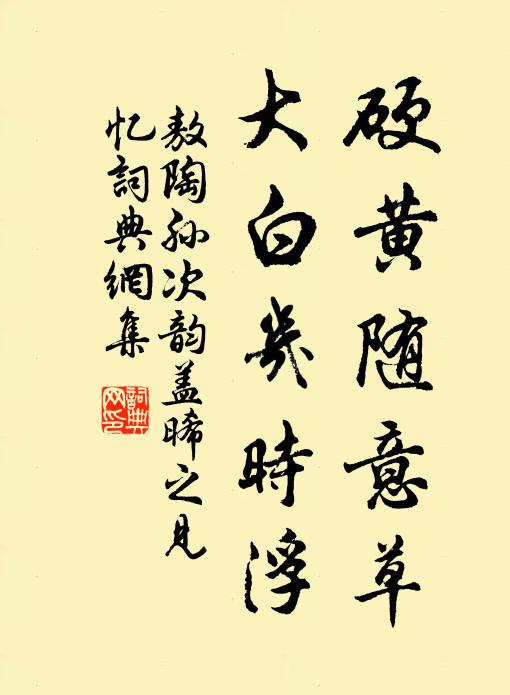 硬黄随意草
大白幾時浮
敖陶孙次韵盖晞之見
忆詞典網集
詞典
网印